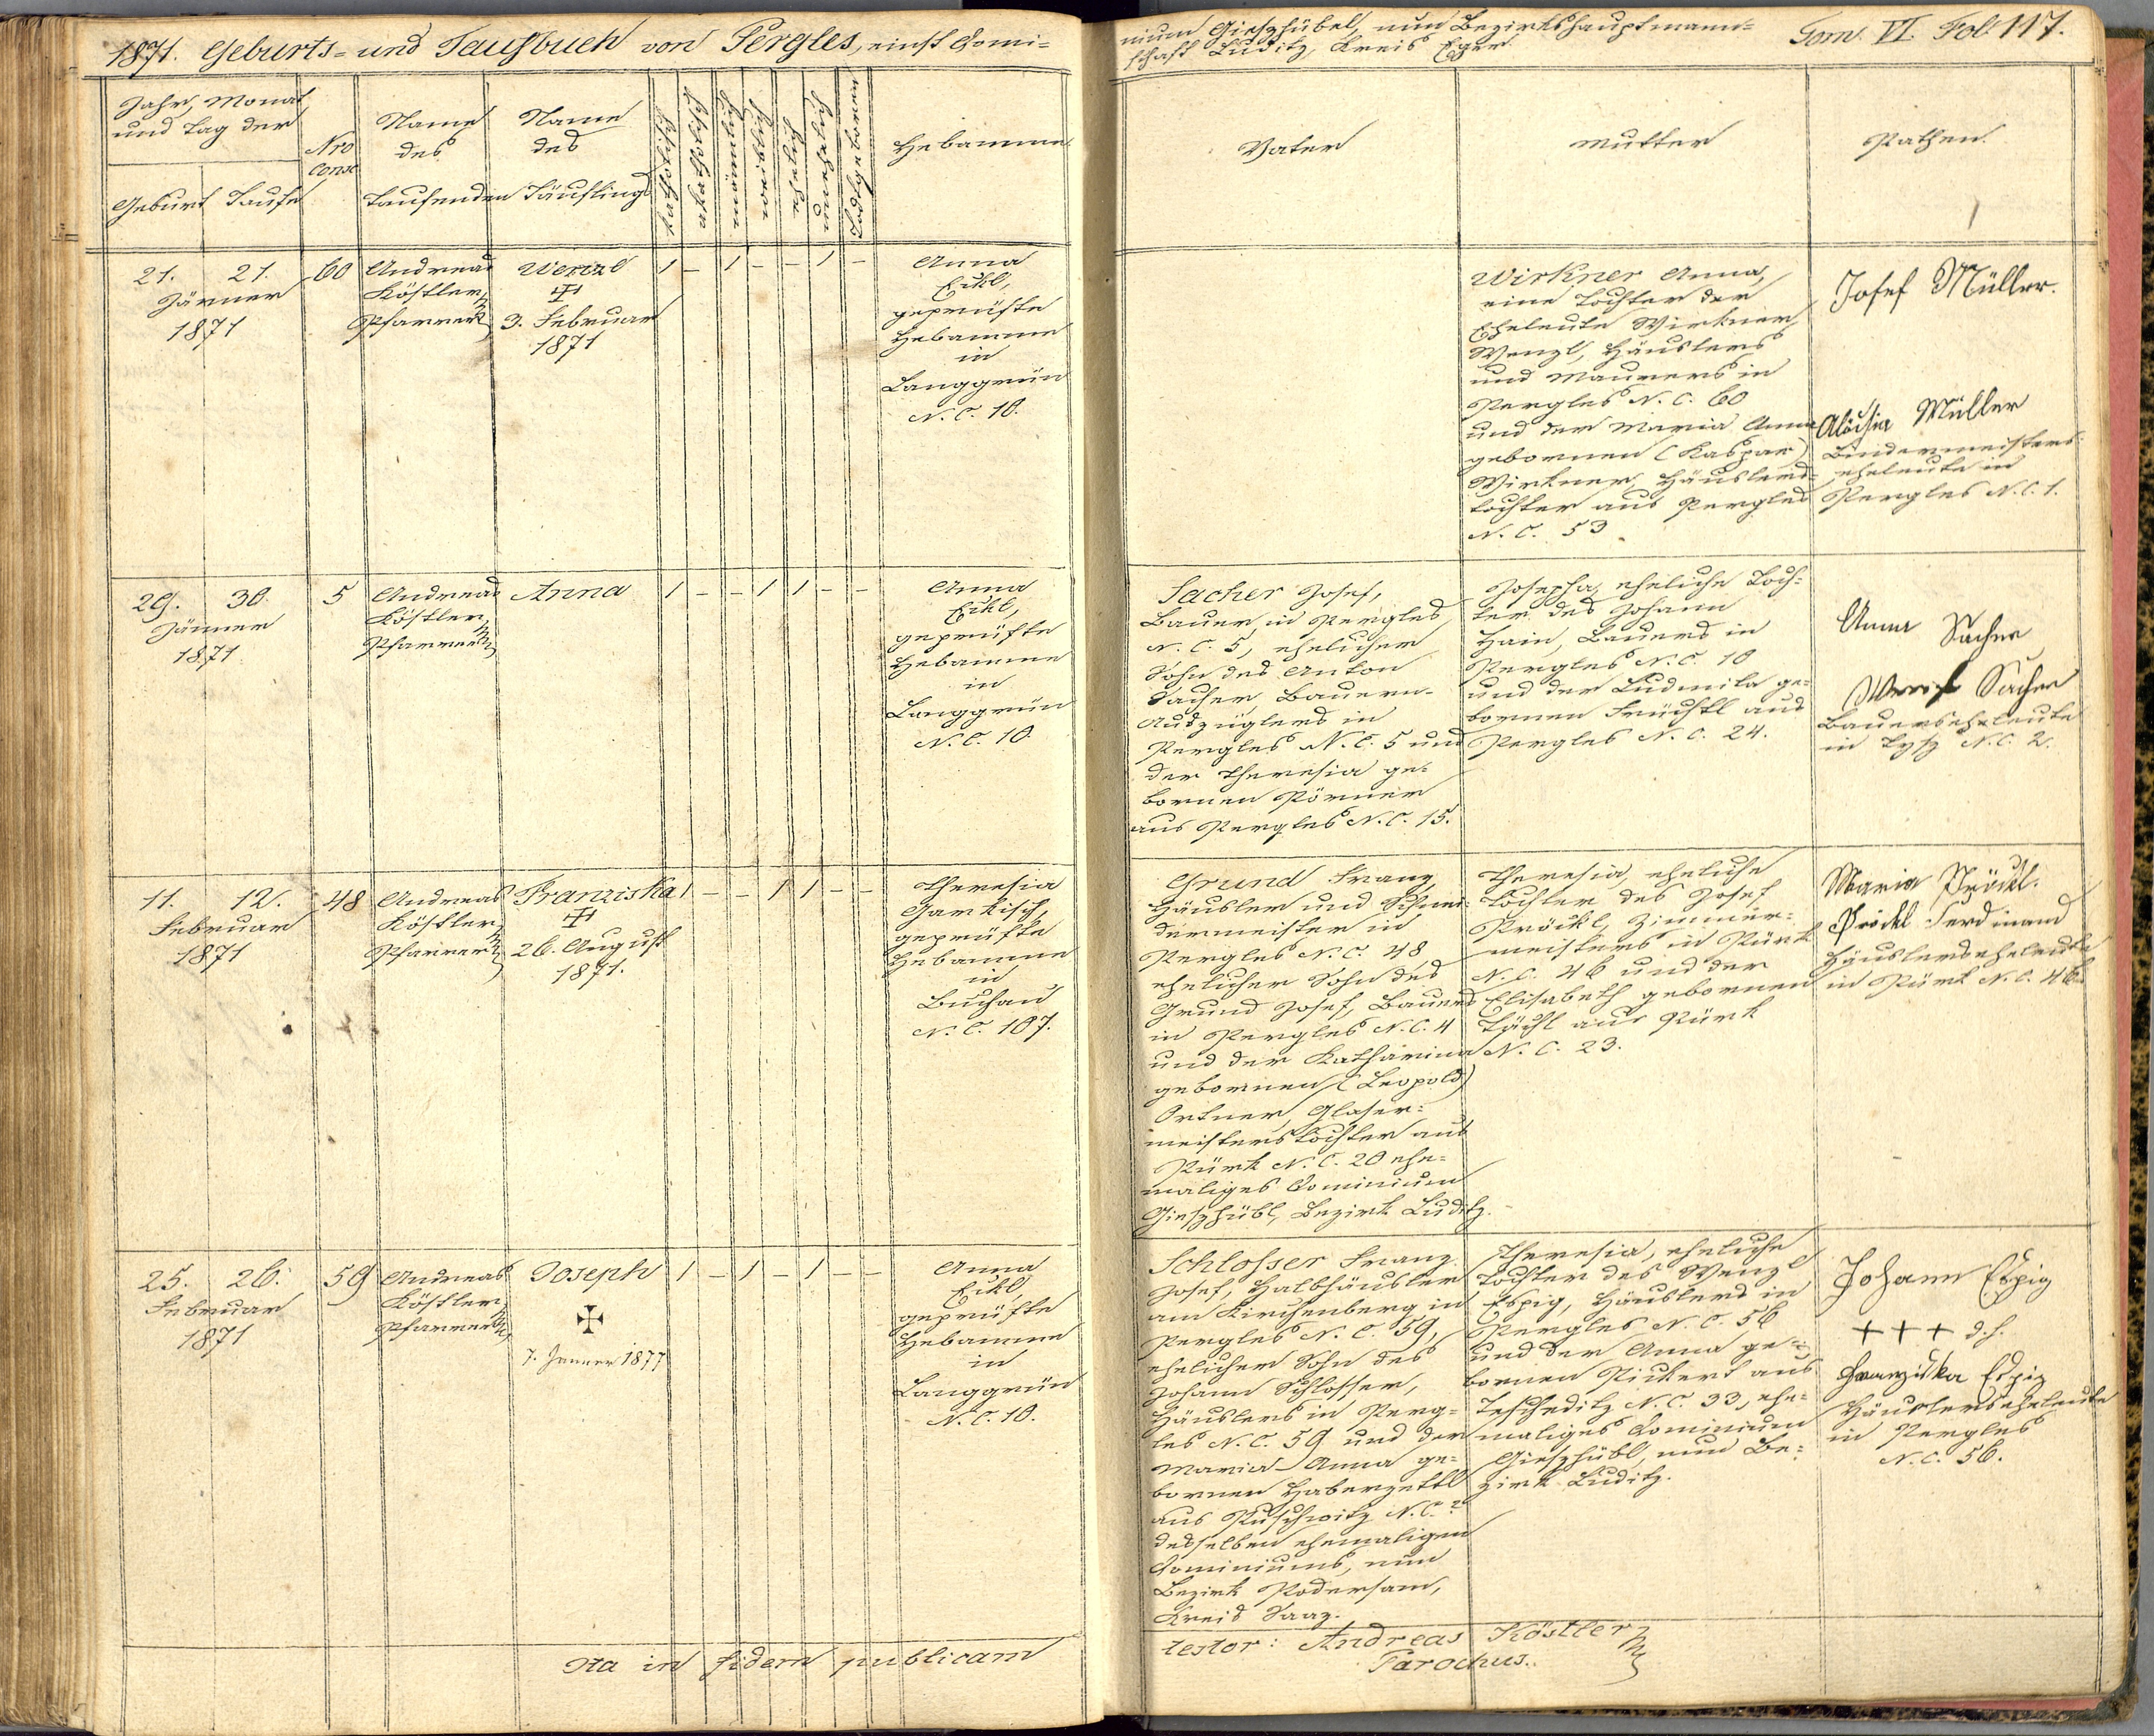 1871. Geburts- und Taufbuch von Pergles, einst Domi-
nium Gieszhübel, nun Bezirkshauptmann-
schaft Luditz, Kreis Eger.
Tom. VI. Fol. 117.
Jahr, Monat
und Tag der
Geburt Taufe
Nro
Consc
Name
des
Taufenden
Name
des
Täuflings
katholisch
akatholisch
männlich
weiblich
ehelich
unehelich
Todtgeboren
Hebamme
Vater
Mutter
Pathen.
21. 21.
Jänner
1871
60
Andreas
Köstler,
Pfarrer
Wenzl
3. Februar
1871
1 - 1 - - 1 -
Anna
Eikl,
geprüfte
Hebamme
in
Langgrün
N. C. 10.
Wirkner Anna,
eine Tochter der
Eheleute Wirkner
Wenzl, Häuslers
und Maurers in
Pergles N. C. 60
und der Maria Anna
gebornen (Kaspar)
Wirkner, Häuslers-
tochter aus Pergles
N. C. 53
Josef Müller.
Aloisia Müller
Bindermeisters-
eheleute in
Pergles N. C. 1.
29. 30.
Jänner
1871
5
Andreas
Köstler,
Pfarrer
Anna
1 - - 1 1 - -
Anna
Eikl,
geprüfte
Hebamme
in
Langgrün
N. C. 10.
Sacher Josef,
Bauer in Pergles
N. C. 5, ehelicher
Sohn des Anton
Sacher, Bauern-
Auszüglers in
Pergles N. C. 5 und
der Theresia ge-
bornen Pörner
aus Pergles N. C. 15.
Josepha, eheliche Toch-
ter des Johann
Hain, Bauers in
Pergles N. C. 10
und der Ludmila ge-
bornen Früchtl aus
Pergles N. C. 24.
Anna Sacher
Sacher
Bauerseheleute
in N. C. 2.
11. 12.
Februar
1871
48
Andreas
Köstler,
Pfarrer
Franziska
26. August
1871.
1 - - 1 1 - -
Theresia
Gartisch,
geprüfte
Hebamme
in
Buchau
N. C. 107.
Grund Franz,
Häusler und Schnei-
dermeister in
Pergles N. C. 48,
ehelicher Sohn des
Grund Josef, Bauers
in Pergles N. C. 4
und der Katharina
gebornen (Leopold)
Ortner, Glaser-
meisterstochter aus
Pürk N. C. 20 ehe-
maliges Dominium
Gieszhübl, Bezirk Luditz.
Theresia, eheliche
Tochter des Josef
Pröckl, Zimmer-
meisters in Pürk
N. C. 46 und der
Elisabeth gebornen
Täckl aus Pürk
N. C. 23.
Maria Pröckl.
Pröckl Ferdinand
Häuslerseheleute
in Pürk N. C. 46.
25. 26.
Februar
1871
59
Andreas
Köstler,
Pfarrer
Joseph
7. Jenner 1877
1 - 1 - 1 - -
Anna
Eikl,
geprüfte
Hebamme
in
Langgrün
N. C. 10.
Schlosser Franz
Josef, Halbhäusler
am Kirchenberg in
Pergles N. C. 59,
ehelicher Sohn des
Johann Schlosser,
Häuslers in Perg-
les N. C. 59 und der
Maria Anna ge-
bornen Haberzettl
aus Puschwitz N. C. ?
desselben ehemaligen
Dominiums, nun
Bezirk Podersam,
Kreis Saaz.
Theresia, eheliche
Tochter des Wenzl
Espig, Häuslers in
Pergles N. C. 56
und der Anna ge-
bornen Rickert aus
Teschetitz N. C. 33, ehe-
maliges Dominium
Gieszhübl, nun Be-
zirk Luditz.
Johann Espig
+++ d. h.
Franziska Espig
Häuslerseheleute
in Pergles
N. C. 56.
Ita in fidem publicam
testor: Andreas Köstler
Parochus.